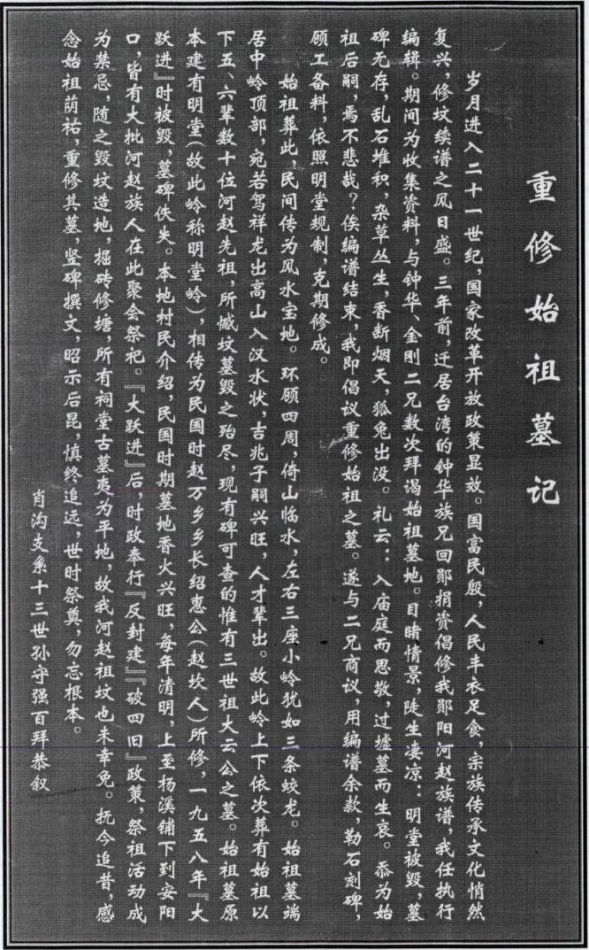 重修始祖墓记
岁月进入二十一世纪,国家改革开放政策显效。国富民殷,人民丰衣足食,宗族传承文化悄然
复兴,修坟续谱之风日盛。三年前,迁居台湾的钟华族兄回郧捐资倡修我郧阳河赵族谱,我任执行
编辑。期间为收集资料,与钟华、金刚二兄数次拜谒始祖墓地。目睹情景,陡生凄凉:明堂被毁,墓
碑无存,乱石堆积,杂草丛生,香断烟灭,狐兔出没。礼云:入庙庭而思敬,过墟墓而生哀。忝为始
祖后嗣,焉不悲哉?俟编谱结束,我即倡议重修始祖之墓。遂与二兄商议,用编谱余款,勒石刻碑,
顾工备料,依照明堂规制,克期修成。
始祖葬此,民间传为风水宝地。环顾四周,倚山临水,左右三座小岭犹如三条蛟龙。始祖墓端
居中岭顶部,宛若驾祥龙出高山入汉水状,吉兆子嗣兴旺,人才辈出。故此岭上下依次葬有始祖以
下五、六辈数十位河赵先祖,所憾坟墓毁之殆尽,现有碑可查的惟有三世祖大云公之墓。始祖墓原
本建有明堂(故此岭称明堂岭),相传为民国时赵万乡乡长绍惠公(赵坎人)所修,一九五八年『大
跃进』时被毁,墓碑佚失。本地村民介绍,民国时期墓地香火兴旺,每年清明,上至杨溪铺下到安阳
口,皆有大批河赵族人在此聚会祭祀。『大跃进』后,时政奉行『反封建』『破四旧』政策,祭祖活动成
为禁忌,随之毁坟造地,掘砖修塘,所有祠堂古墓夷为平地,故我河赵祖坟也未幸免。抚今追昔,感
念始祖荫祐,重修其墓,竖碑撰文,昭示后昆,慎终追远,世时祭奠,勿忘根本。
肖沟支系十三世孙守强百拜恭叙